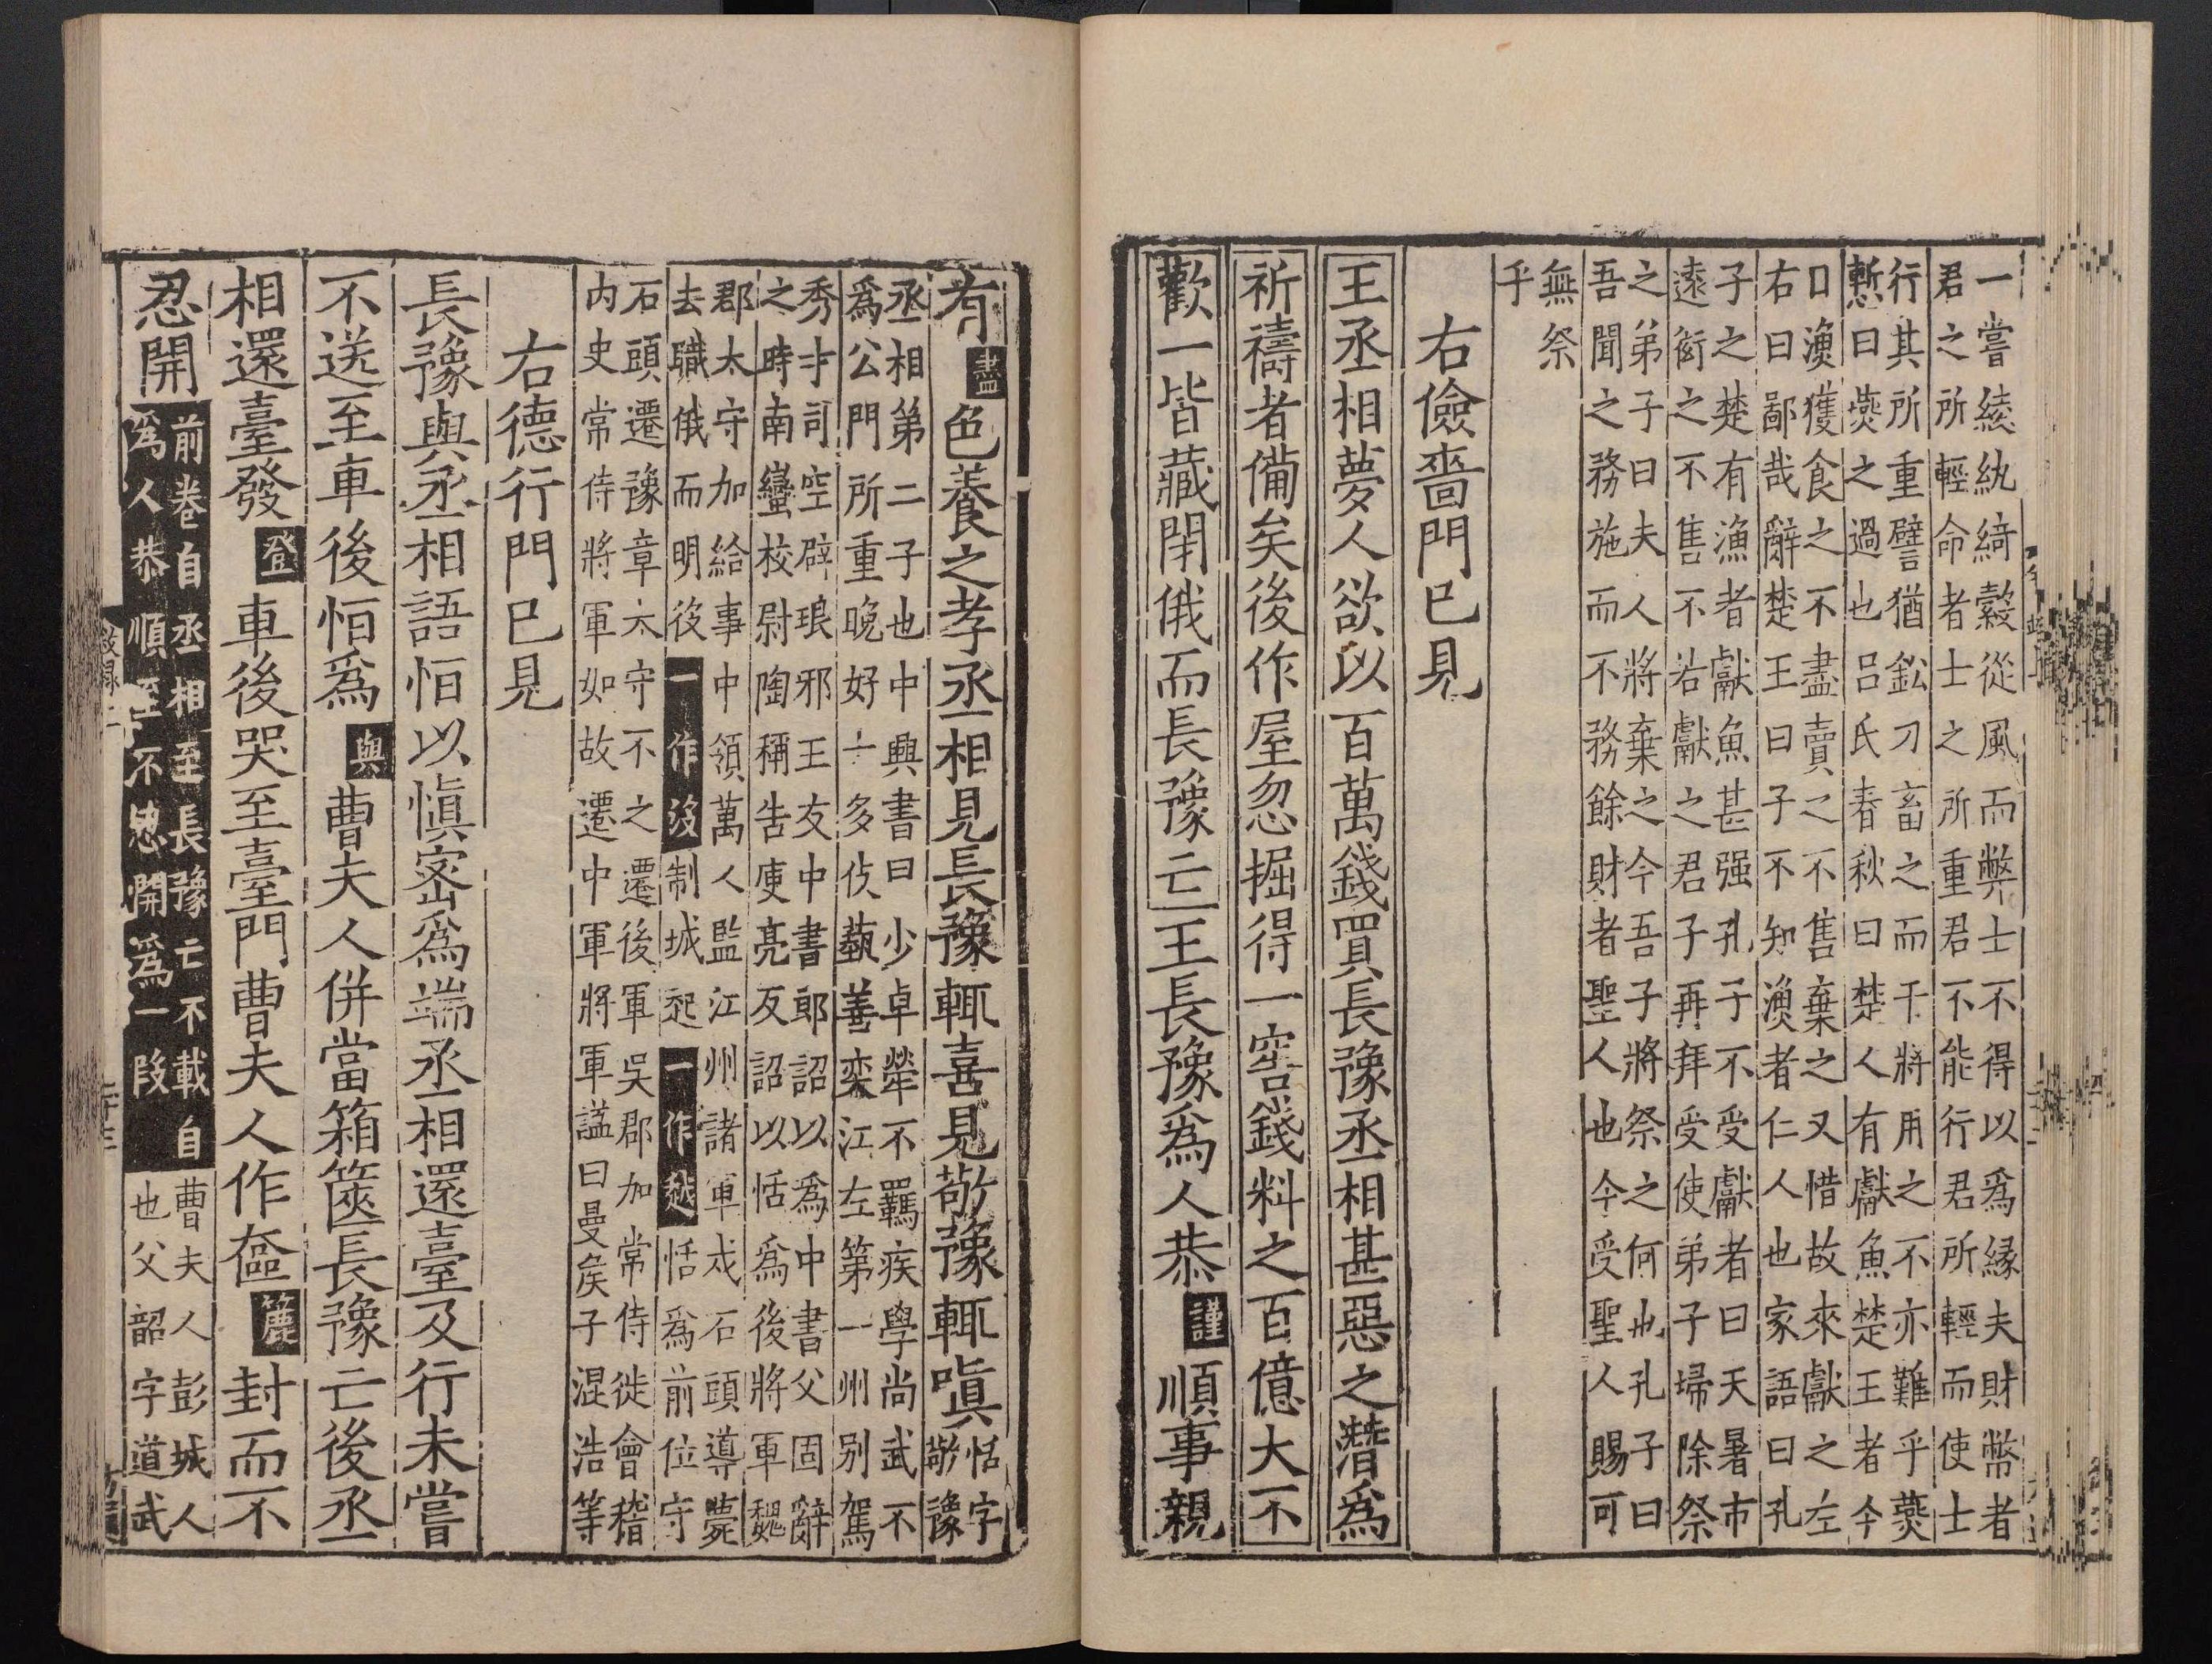 一嘗綾紈綺縠從風而弊士不得以爲縁夫財幣者
君之所輕命者士之所重君不能行君所輕而使士
行其所重譬猶鈆刀畜之而干將用之不亦難乎燕
慙曰燕之過也吕氏春秋曰楚人有獻魚楚王者今
口漁獲食之不盡賣之不售棄之又惜故來獻之左
右曰鄙哉辭楚王曰子不知漁者仁人也家語曰孔
子之楚有漁者獻魚甚强孔子不受獻者曰天暑市
遠衒之不售不若獻之君子再拜受使弟子埽除祭
之弟子曰夫人將棄之今吾子將祭之何也孔子曰
吾聞之務施而不務餘財者聖人也今受聖人賜可
無祭
乎
右儉嗇門已見
王丞相夢人欲以百萬錢買長豫丞相甚惡之潛爲
祈禱者備矣後作屋忽掘得一窖錢料之百億大不
歡一皆藏閉俄而長豫亡王長豫爲人恭謹順事親
有盡色養之孝丞相見長豫輒喜見敬豫輒嗔恬字
敬豫
丞相第二子也中興書曰少卓犖不羈疾學尚武不
爲公門所重晚好士多伎藝善奕江左第一州别駕
秀才司空辟琅邪王友中書郎詔以爲中書父固辭
之時南蠻校尉陶稱告庾亮反詔以恬爲後將軍魏
郡太守加給事中領萬人監江州諸軍戍石頭導薨
去職俄而明後一作没制城起一作越恬爲前位守
石頭遷豫章太守不之遷後軍吳郡加常侍徙會稽
内史常侍將軍如故遷中軍將軍謚曰曼矦子混浩等
右德行門已見
長豫與丞相語恒以愼密爲端丞相還臺及行未嘗
不送至車後恒爲與曹夫人併當箱篋長豫亡後丞
相還臺發登車後哭至臺門曹夫人作奩簏封而不
忍開
前卷自丞相至長豫亡不載自
爲人恭順至不忍開爲一段
曹夫人彭城人
也父韶字道武